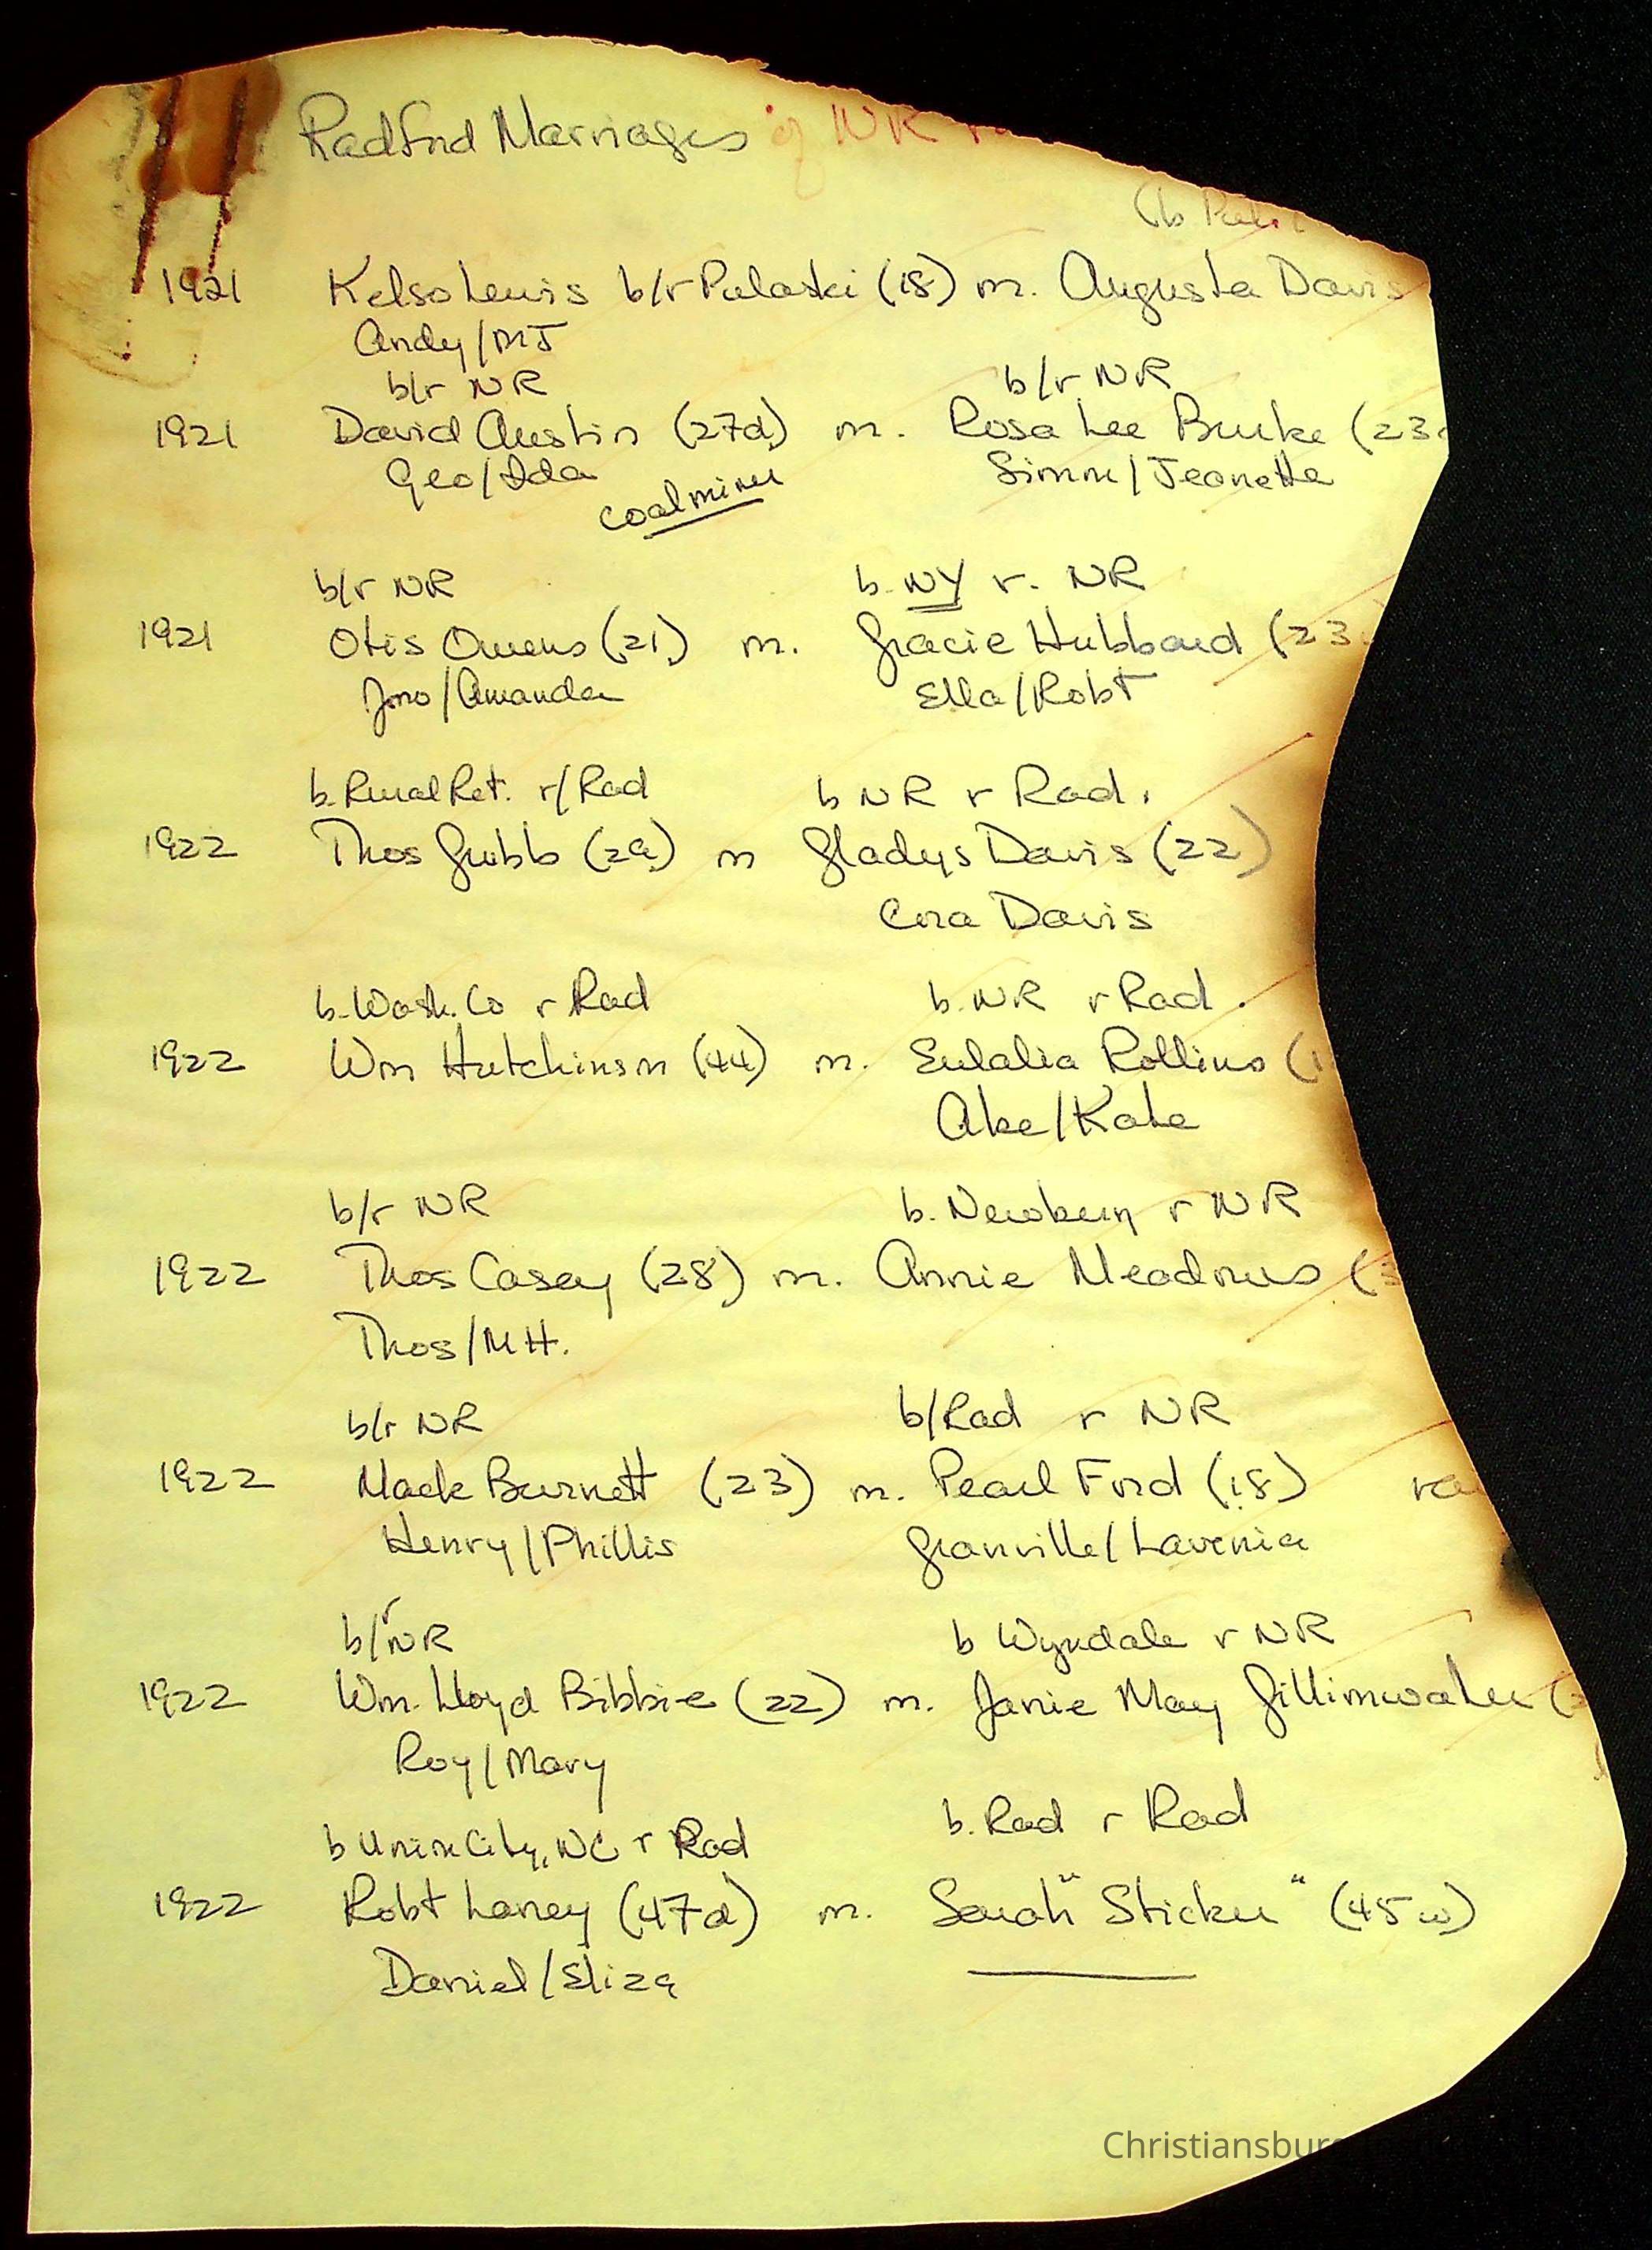 Radford Marriages of NR
(b Pulas
1921 Kelso Lewis b/r Pulaski (18) m. Augusta Davis
Andy/MJ
b/r NR b/r NR
1921 David Austin (27d) m. Rosa Lee Burke (23
Geo/Ida Simm/Jeanette
coalminer
b/r NR b. NY r. NR
1921 Otis Owens (21) m. Gracie Hubbard (23
Jno/Amanda Ella/Robt
b. Rural Ret. r/Rad b NR r Rad.
1922 Thos Grubb (29) m Gladys Davis (22)
Cora Davis
b. Wash. Co r Rad b. NR r Rad.
1922 Wm Hutchinson (44) m. Eulalia Rollins (1
Abe/Kate
b/r NR b. Newbern r NR
1922 Thos Casey (28) m. Annie Meadows (3
Thos/MH.
b/r NR b/Rad r NR
1922 Mack Burnett (23) m. Pearl Ford (18)
Henry/Phillis Granville/Lavenia
b/r NR b Wyndale r NR
1922 Wm. Lloyd Bibbie (22) m. Janie May Gillimwater (2
Roy/Mary
b Union City, NC r Rad b. Rad r Rad
1922 Robt Laney (47d) m. Sarah "Sticker" (45w)
Daniel/Eliza
Christiansburg